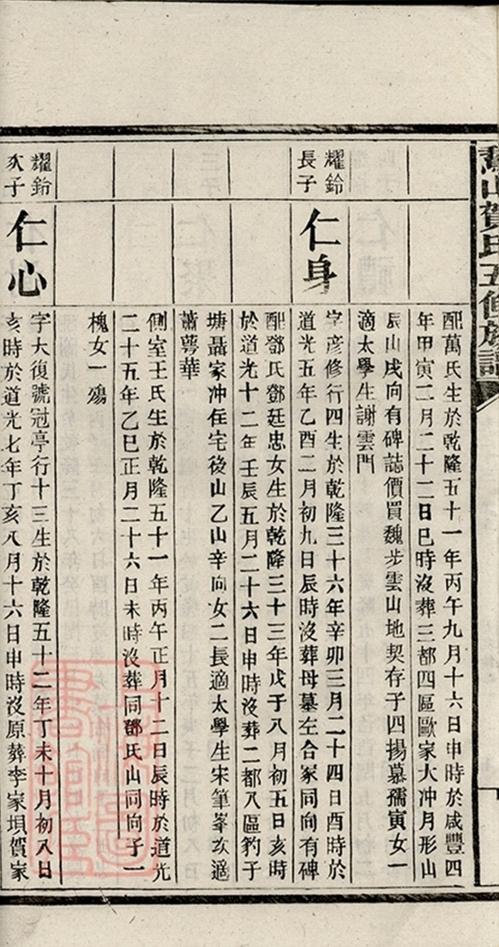 賀氏五修族譜
配萬氏生於乾隆五十一年丙午九月十六日申時於咸豐四
年甲寅二月二十二日巳時沒葬三都四區歐家大冲月形山
辰山戌向有碑誌價買魏步雲山地契存子四揚慕孺寅女一
適太學生謝雲門
耀鈴
長子
仁身
字彥修行四生於乾隆三十六年辛卯三月二十四日酉時於
道光五年乙酉二月初九日辰時沒葬母墓左合冢同向有碑
配鄧氏鄧廷忠女生於乾隆三十三年戊子八月初五日亥時
於道光十二年壬辰五月二十六日申時沒葬二都八區豹子
塘聶家冲住宅後山乙山辛向女二長適太學生宋筆峯次適
蕭萼華
側室王氏生於乾隆五十一年丙午正月十二日辰時於道光
二十五年乙巳正月二十六日未時沒葬同鄧氏山同向子一
槐女一殤
耀鈴
次子
仁心
字大復號冠亭行十三生於乾隆五十二年丁未十月初八日
亥時於道光七年丁亥八月十六日申時沒原葬李家垻賀家